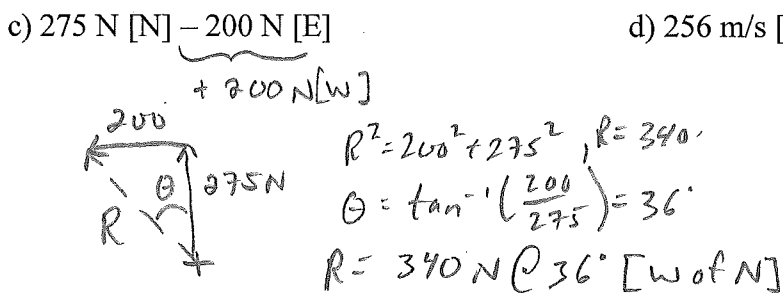 c) 275 N [N] – 200 N [E]
d) 256 m/s [
+ 200 N[W]
200
R²=200²+275², R=340.
θ 275N
θ = tan⁻¹(200/275)=36°
R
R= 340 N @ 36° [W of N]